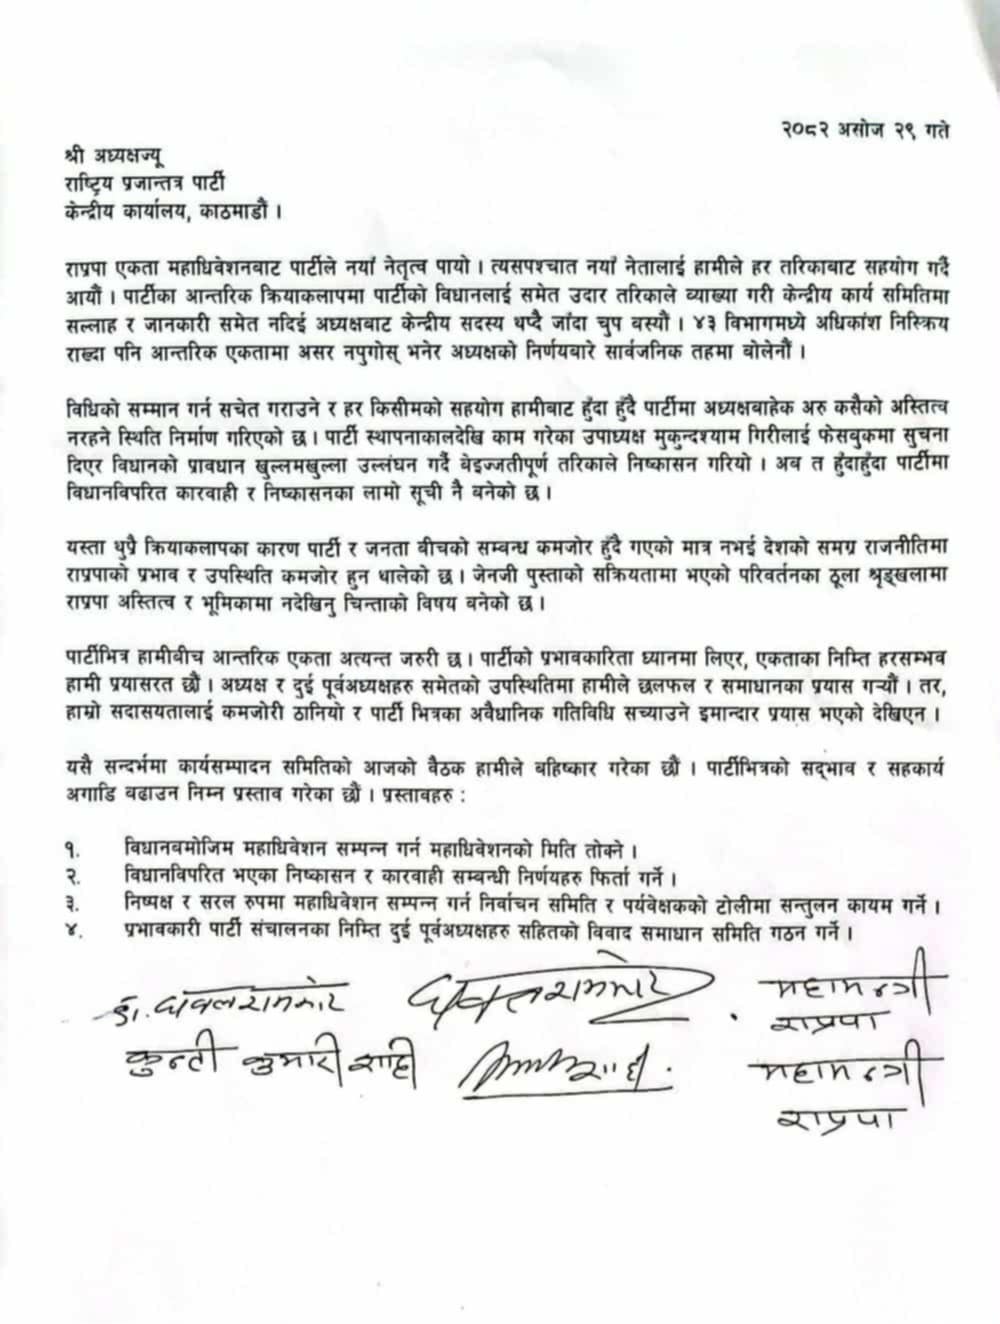 २०८२ असोज २९ गते
श्री अध्यक्षज्यू
राष्ट्रिय प्रजान्तत्र पार्टी
केन्द्रीय कार्यालय, काठमाडौं ।
राप्रपा एकता महाधिवेशनबाट पार्टीले नयाँ नेतृत्व पायो । त्यसपश्चात नयाँ नेतालाई हामीले हर तरिकाबाट सहयोग गर्दै
आयौं । पार्टीका आन्तरिक क्रियाकलापमा पार्टीको विधानलाई समेत उदार तरिकाले व्याख्या गरी केन्द्रीय कार्य समितिमा
सल्लाह र जानकारी समेत नदिई अध्यक्षबाट केन्द्रीय सदस्य थप्दै जाँदा चुप बस्यौं । ४३ विभागमध्ये अधिकांश निस्क्रिय
राख्दा पनि आन्तरिक एकतामा असर नपुगोस् भनेर अध्यक्षको निर्णयबारे सार्वजनिक तहमा बोलेनौं ।
विधिको सम्मान गर्न सचेत गराउने र हर किसीमको सहयोग हामीबाट हुँदा हुँदै पार्टीमा अध्यक्षबाहेक अरु कसैको अस्तित्व
नरहने स्थिति निर्माण गरिएको छ । पार्टी स्थापनाकालदेखि काम गरेका उपाध्यक्ष मुकुन्दश्याम गिरीलाई फेसबुकमा सुचना
दिएर विधानको प्रावधान खुल्लमखुल्ला उल्लंघन गर्दै बेइज्जतीपूर्ण तरिकाले निष्कासन गरियो । अब त हुँदाहुँदा पार्टीमा
विधानविपरित कारवाही र निष्कासनका लामो सूची नै बनेको छ ।
यस्ता थुप्रै क्रियाकलापका कारण पार्टी र जनता बीचको सम्बन्ध कमजोर हुँदै गएको मात्र नभई देशको समग्र राजनीतिमा
राप्रपाको प्रभाव र उपस्थिति कमजोर हुन थालेको छ । जेनजी पुस्ताको सक्रियतामा भएको परिवर्तनका ठूला श्रृङ्खलामा
राप्रपा अस्तित्व र भूमिकामा नदेखिनु चिन्ताको विषय बनेको छ ।
पार्टीभित्र हामीबीच आन्तरिक एकता अत्यन्त जरुरी छ । पार्टीको प्रभावकारिता ध्यानमा लिएर, एकताका निम्ति हरसम्भव
हामी प्रयासरत छौं । अध्यक्ष र दुई पूर्वअध्यक्षहरु समेतको उपस्थितिमा हामीले छलफल र समाधानका प्रयास गर्‍यौं । तर,
हाम्रो सदासयतालाई कमजोरी ठानियो र पार्टी भित्रका अवैधानिक गतिविधि सच्याउने इमान्दार प्रयास भएको देखिएन ।
यसै सन्दर्भमा कार्यसम्पादन समितिको आजको वैठक हामीले बहिष्कार गरेका छौं । पार्टीभित्रको सद्‌भाव र सहकार्य
अगाडि बढाउन निम्न प्रस्ताव गरेका छौं । प्रस्तावहरु :
१. विधानबमोजिम महाधिवेशन सम्पन्न गर्न महाधिवेशनको मिति तोक्ने ।
२. विधानविपरित भएका निष्कासन र कारवाही सम्बन्धी निर्णयहरु फिर्ता गर्ने ।
३. निष्पक्ष र सरल रुपमा महाधिवेशन सम्पन्न गर्न निर्वाचन समिति र पर्यवेक्षकको टोलीमा सन्तुलन कायम गर्ने ।
४. प्रभावकारी पार्टी संचालनका निम्ति दुई पूर्वअध्यक्षहरु सहितको विवाद समाधान समिति गठन गर्ने ।
डा. धवलशमशेर धवलशमशेर महामन्त्री
राप्रपा
कुन्ती कुमारी शाही शाही महामन्त्री
राप्रपा